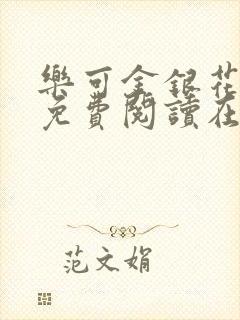 樂可金銀花
免費閱讀在
范文娟